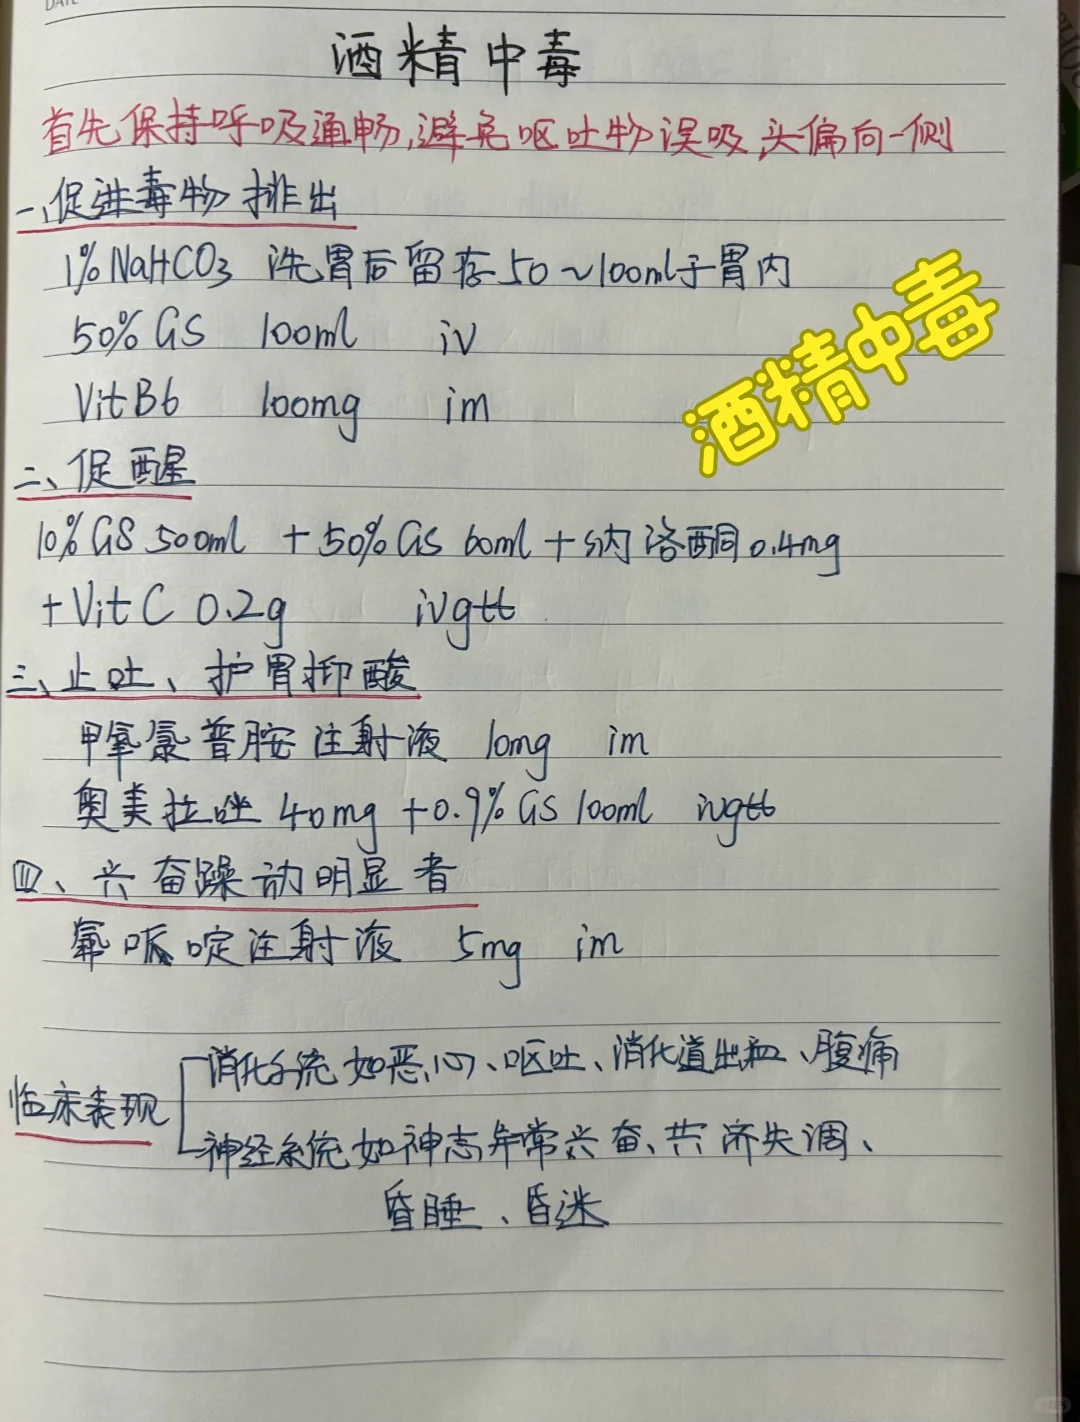 DATE
酒精中毒
首先保持呼吸通畅,避免呕吐物误吸,头偏向一侧
一、促进毒物排出
1%NaHCO3 洗胃后留存50~100ml于胃内
50%GS 100ml iv
VitB6 100mg im
酒精中毒
二、促醒
10%GS 500ml +50%GS 60ml+纳洛酮0.4mg
+VitC 0.2g ivgtt
三、止吐、护胃抑酸
甲氧氯普胺注射液 10mg im
奥美拉唑 40mg +0.9%GS 100ml ivgtt
四、兴奋躁动明显者
氟哌啶注射液 5mg im
临床表现
消化系统 如恶心、呕吐、消化道出血、腹痛
神经系统 如神志异常兴奋、共济失调、
昏睡、昏迷